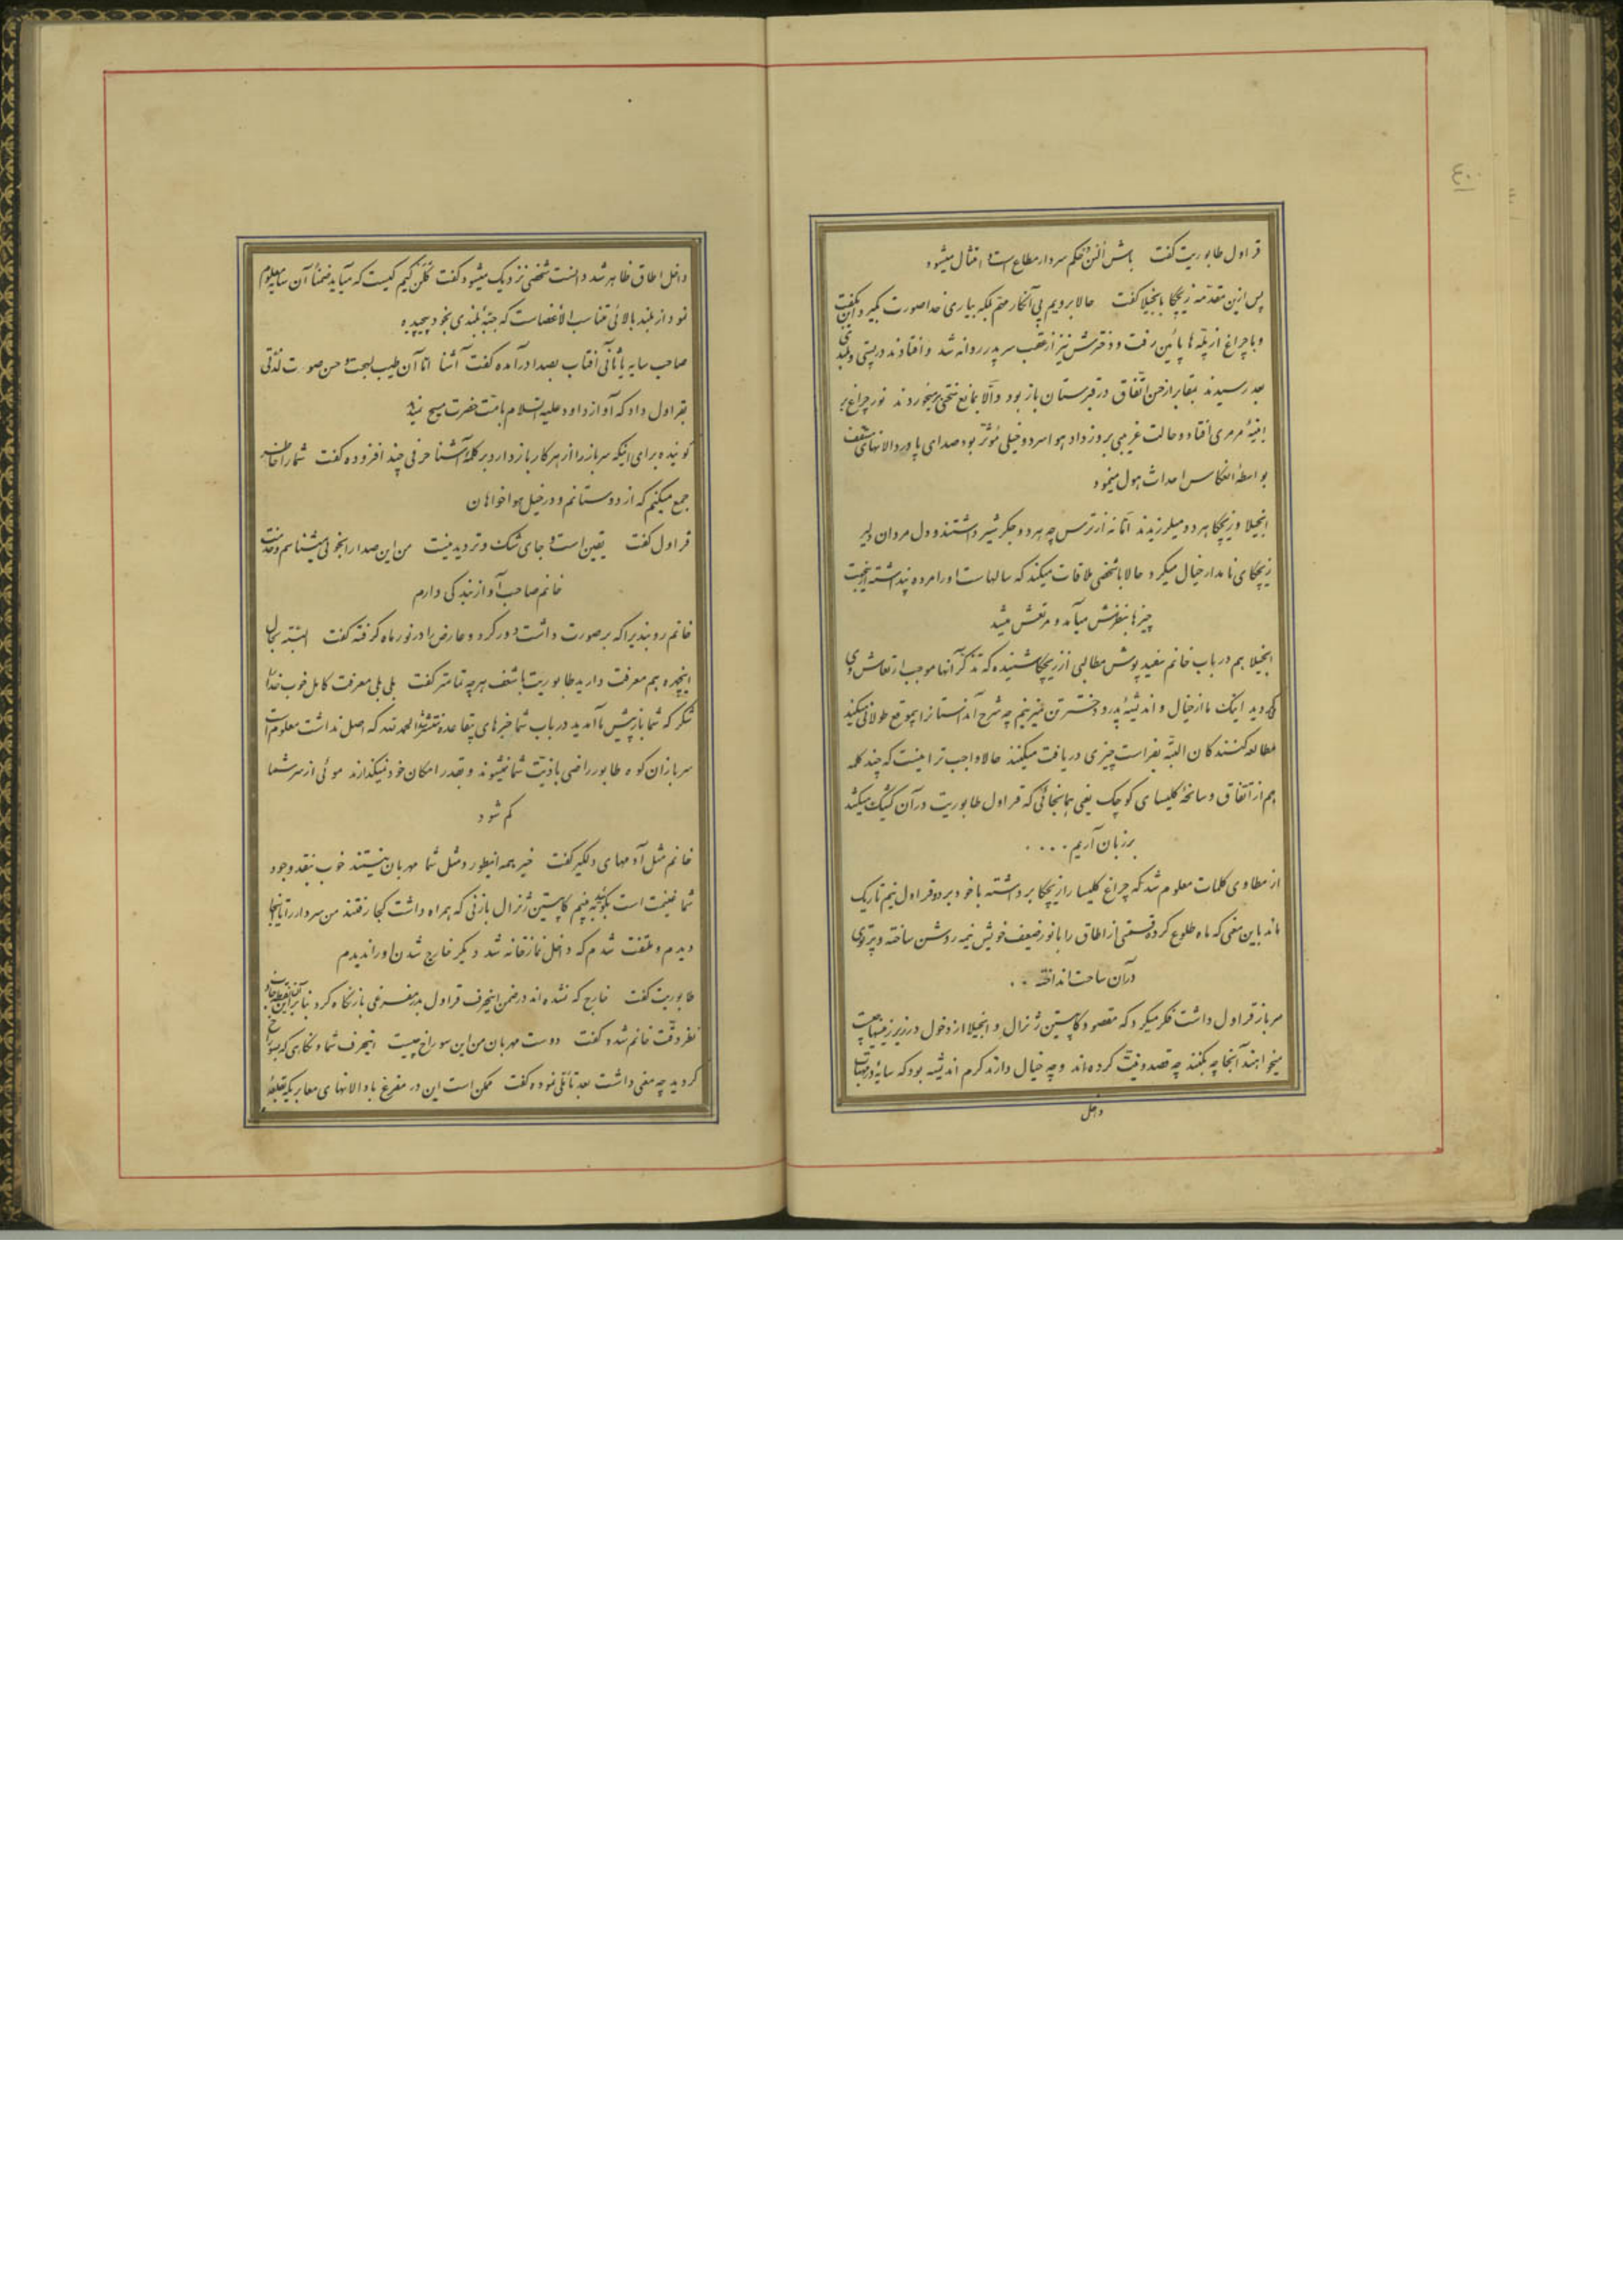 ۴۰
قراول طابوریت گفت باش اُلسُن حکم سردار مطاع است و امتثال میشود
پس ازین مقدمه زیچکا بانجیلا گفت حالا برویم پی آنکار مهم بلکه بیاری خدا صورت بگیرد این بگفت
و با چراغ از پله ها پائین رفت و دخترش نیز از عقب سر پدر روانه شد و افتادند در پستی و بلندی
بعد رسیدند بمقابر از حسن اتفاق در قبرستان باز بود والا بمانع سختی برمیخوردند نور چراغ بر
ابنیهٔ مرمری افتاد و حالت غریبی بروز داد هوا سرد و خیلی مؤثر بود صدای پا در دالانهای سقف
بواسطهٔ انعکاس احداث هول مینمود
انجیلا و زیچکا هر دو میلرزیدند اما نه از ترس چه هر دو جگر شیر داشتند و دل مردان دلیر
زیچکای نامدار خیال میکرد حالا با شخصی ملاقات میکند که سالهاست او را مرده پنداشته ازینجهت
چیزها بنظرش میآمد و مرتعش میشد
انجیلا هم در باب خانم سفید پوش مطالبی از زیچکا شنیده که تذکر آنها موجب ارتعاش وی
میگردید اینک ما از خیال و اندیشهٔ پدر و دختر تن میزنیم چه شرح آن داستانرا بیموقع طولانی میکند
مطالعه کنندکان البته بفراست چیزی دریافت میکنند حالا واجب تر اینست که چند کلمه
هم از اتفاق و سانحهٔ کلیسای کوچک یعنی همانجائی که قراول طابوریت در آن کشیک میکشد
بر زبان آریم ....
از مطاوی کلمات معلوم شد که چراغ کلیسا را زیچکا برداشته با خود برد و قراول نیم تاریک
ماند باین معنی که ماه طلوع کرده قسمتی از اطاق را با نور ضعیف خویش نیمه روشن ساخته و پرتوی
در آن ساحت انداخته ..
سرباز قراول داشت فکر میکرد که مقصود کاپیتن ژنرال و انجیلا از دخول در زیر زمینها چیست
میخواهند آنجا چه بکنند چه قصد و نیت کرده اند و چه خیال دارند گرم اندیشه بود که سایهٔ در مهتاب
داخل
داخل اطاق ظاهر شد دانست شخصی نزدیک میشود گفت گلَن کیم کیست که میآید ضمناً آن سایه معلوم
نمود از بلند بالائی متناسب الاعضاست که جبهٔ بلندی بخود پیچیده
صاحب سایه با تأنی آفتاب بصدا درآمده گفت آشنا اما آن طیب لهجه و حسن صوت لذتی
بقراول داد که آواز داود علیه السلام بامت حضرت مسیح نبد
گوینده برای اینکه سرباز را از هر کار باز دارد بر کلمهٔ آشنا حرفی چند افزوده گفت شما را خاطر
جمع میکنم که از دوستانم و در خیل هواخواهان
قراول گفت یقین است و جای شک و تردید نیست من این صدا را بخوبی میشناسم و خدمت
خانم صاحب آواز بندگی دارم
خانم روبندیرا که بر صورت داشت دور کرد و عارض را در نور ماه گرفته گفت البته بحال
اینچهره هم معرفت دارید طابوریت با شعف هر چه تمامتر گفت بلی بلی معرفت کامل خوب خدا را
شکر که شما باز پیش ما آمدید در باب شما خبرهای بیقاعده منتشر شد الحمد لله که اصل نداشت معلوم است
سربازان کوه طابور راضی باذیت شما نمیشوند و بقدر امکان خود نمیگذارند موئی از سر شما
کم شود
خانم مثل آدمهای دلگیر گفت خیر همه اینطور و مثل شما مهربان نیستند خوب بنقد وجود
شما غنیمت است بگوئید ببینم کاپیتن ژنرال با زنی که همراه داشت کجا رفتند من سردار را تا اینجا
دیدم و ملتفت شدم که داخل نمازخانه شد دیگر خارج شدن او را ندیدم
طابوریت گفت خارج که نشده اند در ضمن اینحرف قراول بدر مفرغی باز نگاه کرد بنابراین
نظر دقت خانم شده گفت دوست مهربان من این سوراخ چیست اینحرف شما و نگاری که بسوراخ
کردید چه معنی داشت بعد تأملی نموده گفت ممکن است این در مفرغ با دالانهای معابر یکه بقلعهٔ